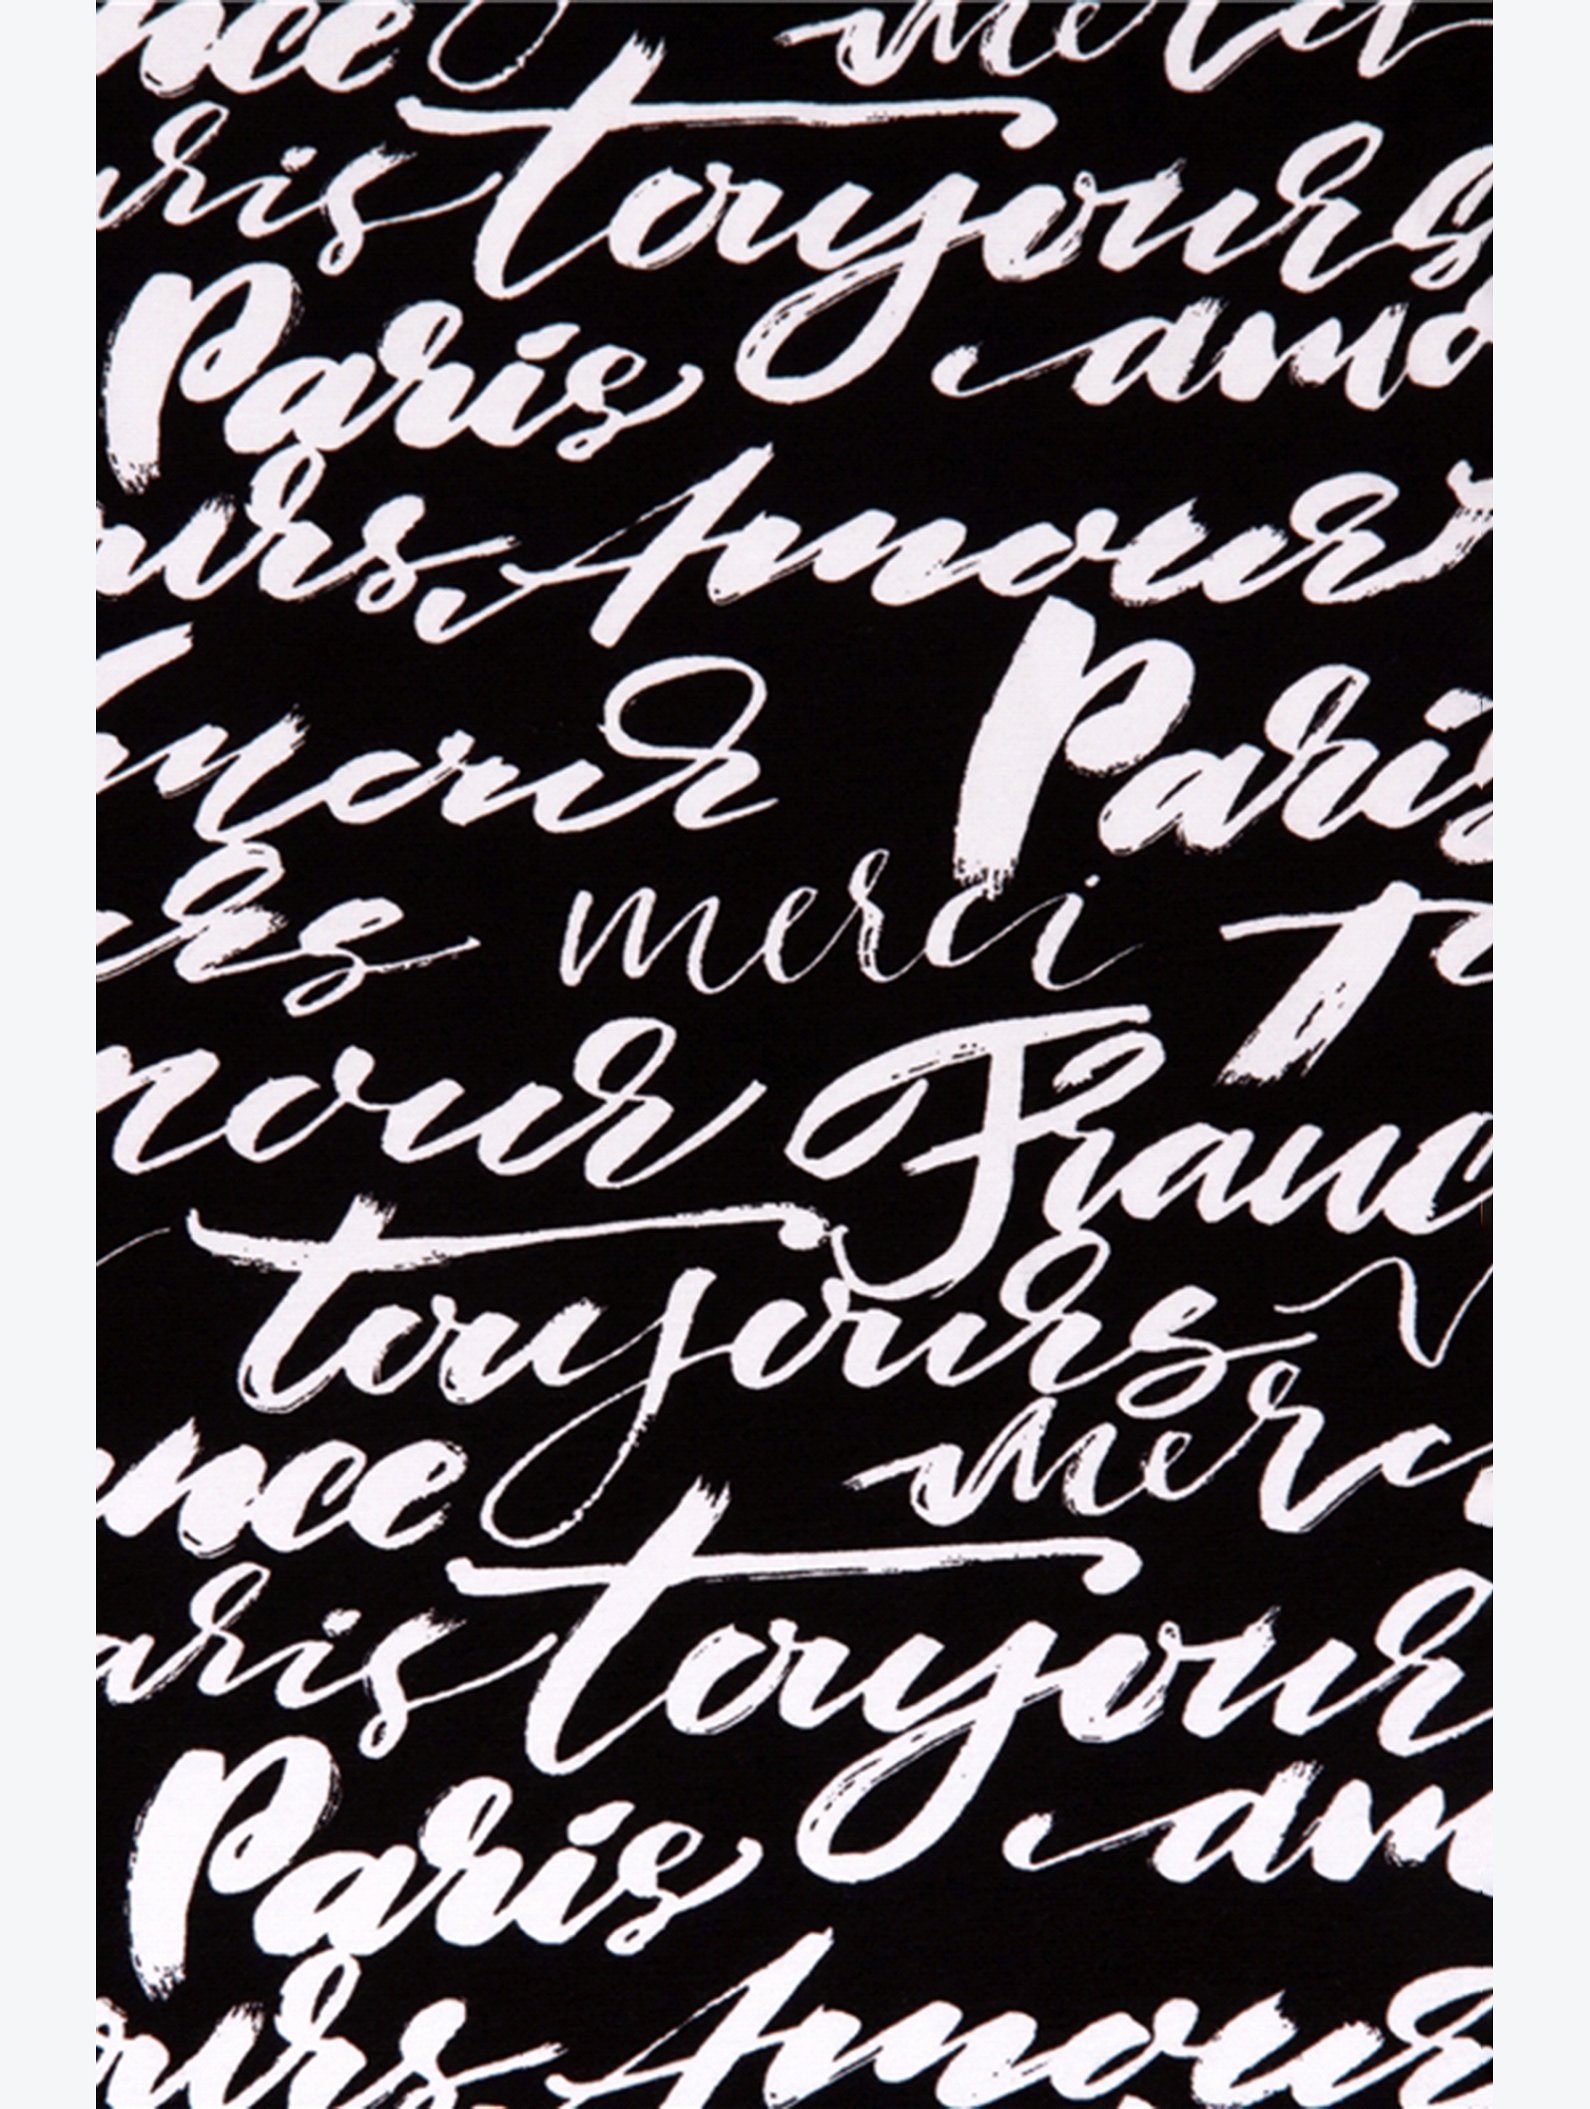 nce merci
aris toujours
Paris amo
urs Amour
mour Paris
ers merci To
mour Franc
toujours
ance merci
aris toujour
Paris am
ours Amour